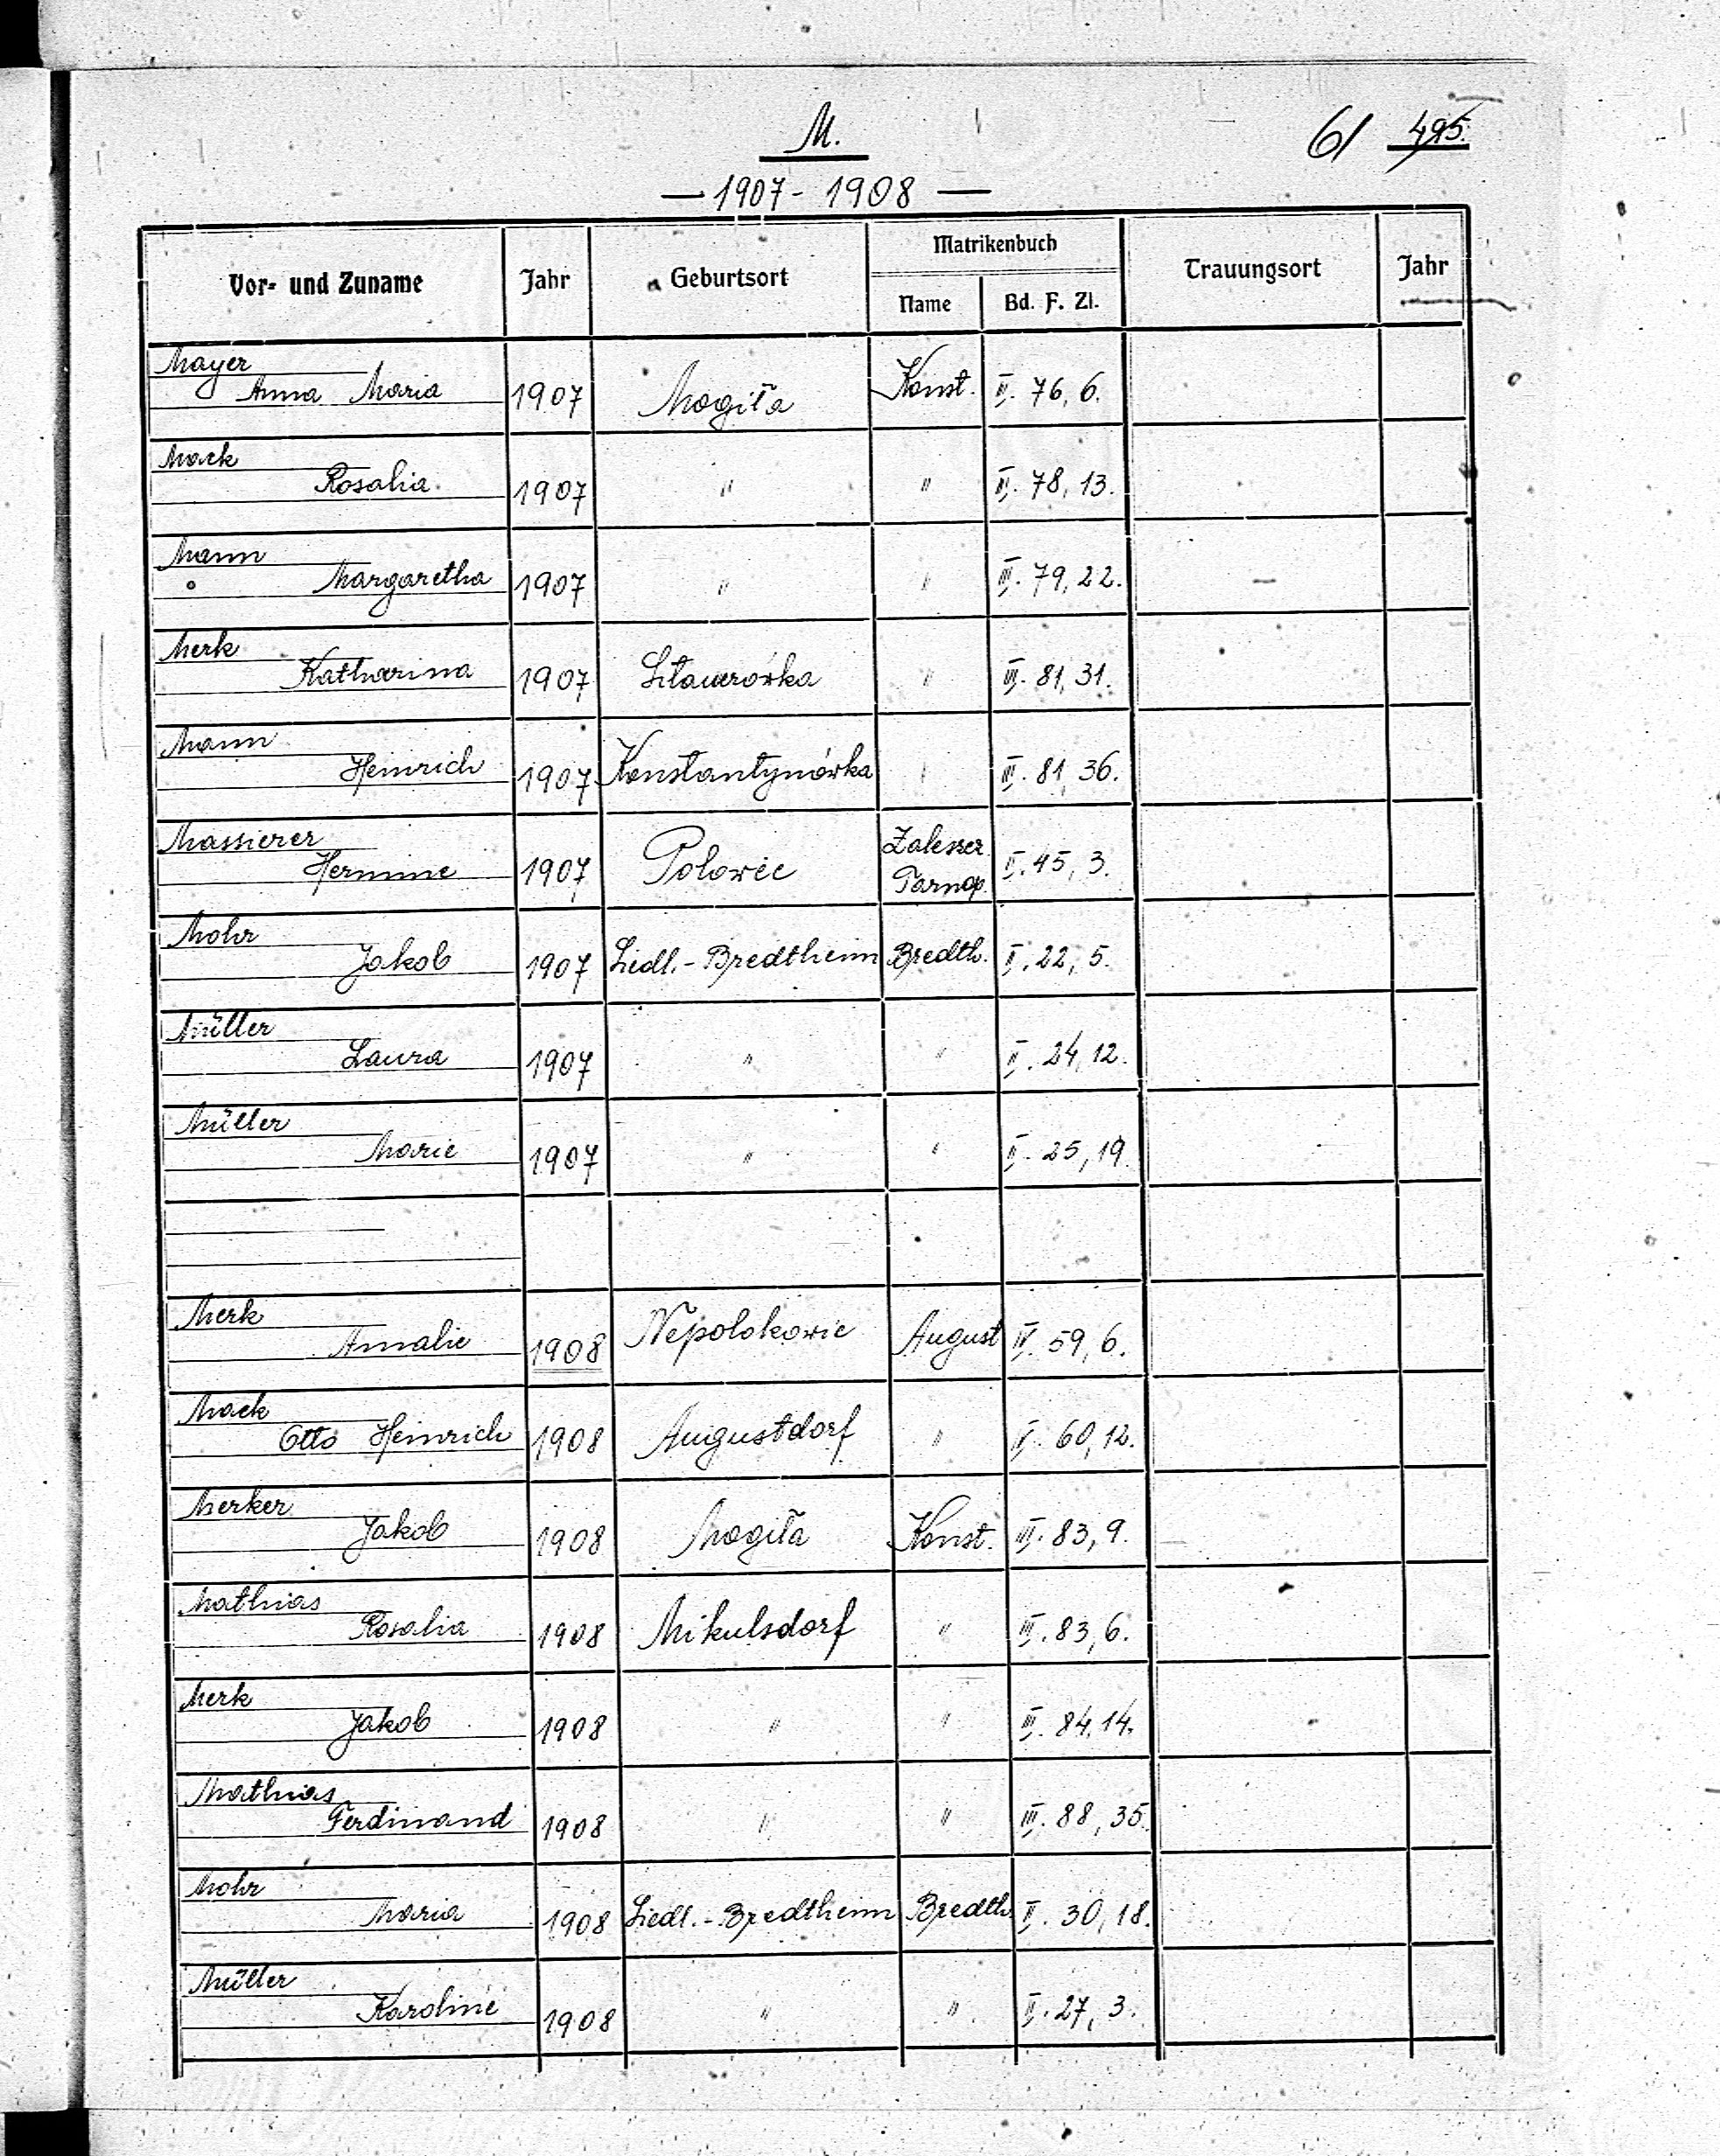 M.
61 495.
— 1907 - 1908 —
Vor- und Zuname Jahr Geburtsort Matrikenbuch Trauungsort Jahr
Name Bd. F. Zl.
Mayer
Anna Maria 1907 Mogiła Konst. III. 76, 6.
Mack
Rosalia 1907 " " III. 78, 13.
Mann
Margaretha 1907 " " III. 79, 22.
Merk
Katharina 1907 " III. 81, 31.
Mann
Heinrich 1907 Konstantynówka " III. 81, 36.
Massierer
Hermine 1907 Polowce Zaleszcz. Tarnop. II. 45, 3.
Mohr
Jakob 1907 Siedl.-Bredtheim Bredth. II. 22, 5.
Müller
Laura 1907 " " II. 24, 12.
Müller
Marie 1907 " " II. 25, 19.
Merk
Amalie 1908 Nepolokowic August IV. 59, 6.
Mack
Otto Heinrich 1908 Augustdorf " IV. 60, 12.
Merker
Jakob 1908 Mogiła Konst. III. 83, 9.
Mathias
Rosalia 1908 Mikulsdorf " III. 83, 6.
Merk
Jakob 1908 " " III. 84, 14.
Mathias
Ferdinand 1908 " " III. 88, 35.
Mohr
Maria 1908 Siedl.-Bredtheim Bredth. II. 30, 18.
Müller
Karoline 1908 " " II. 27, 3.